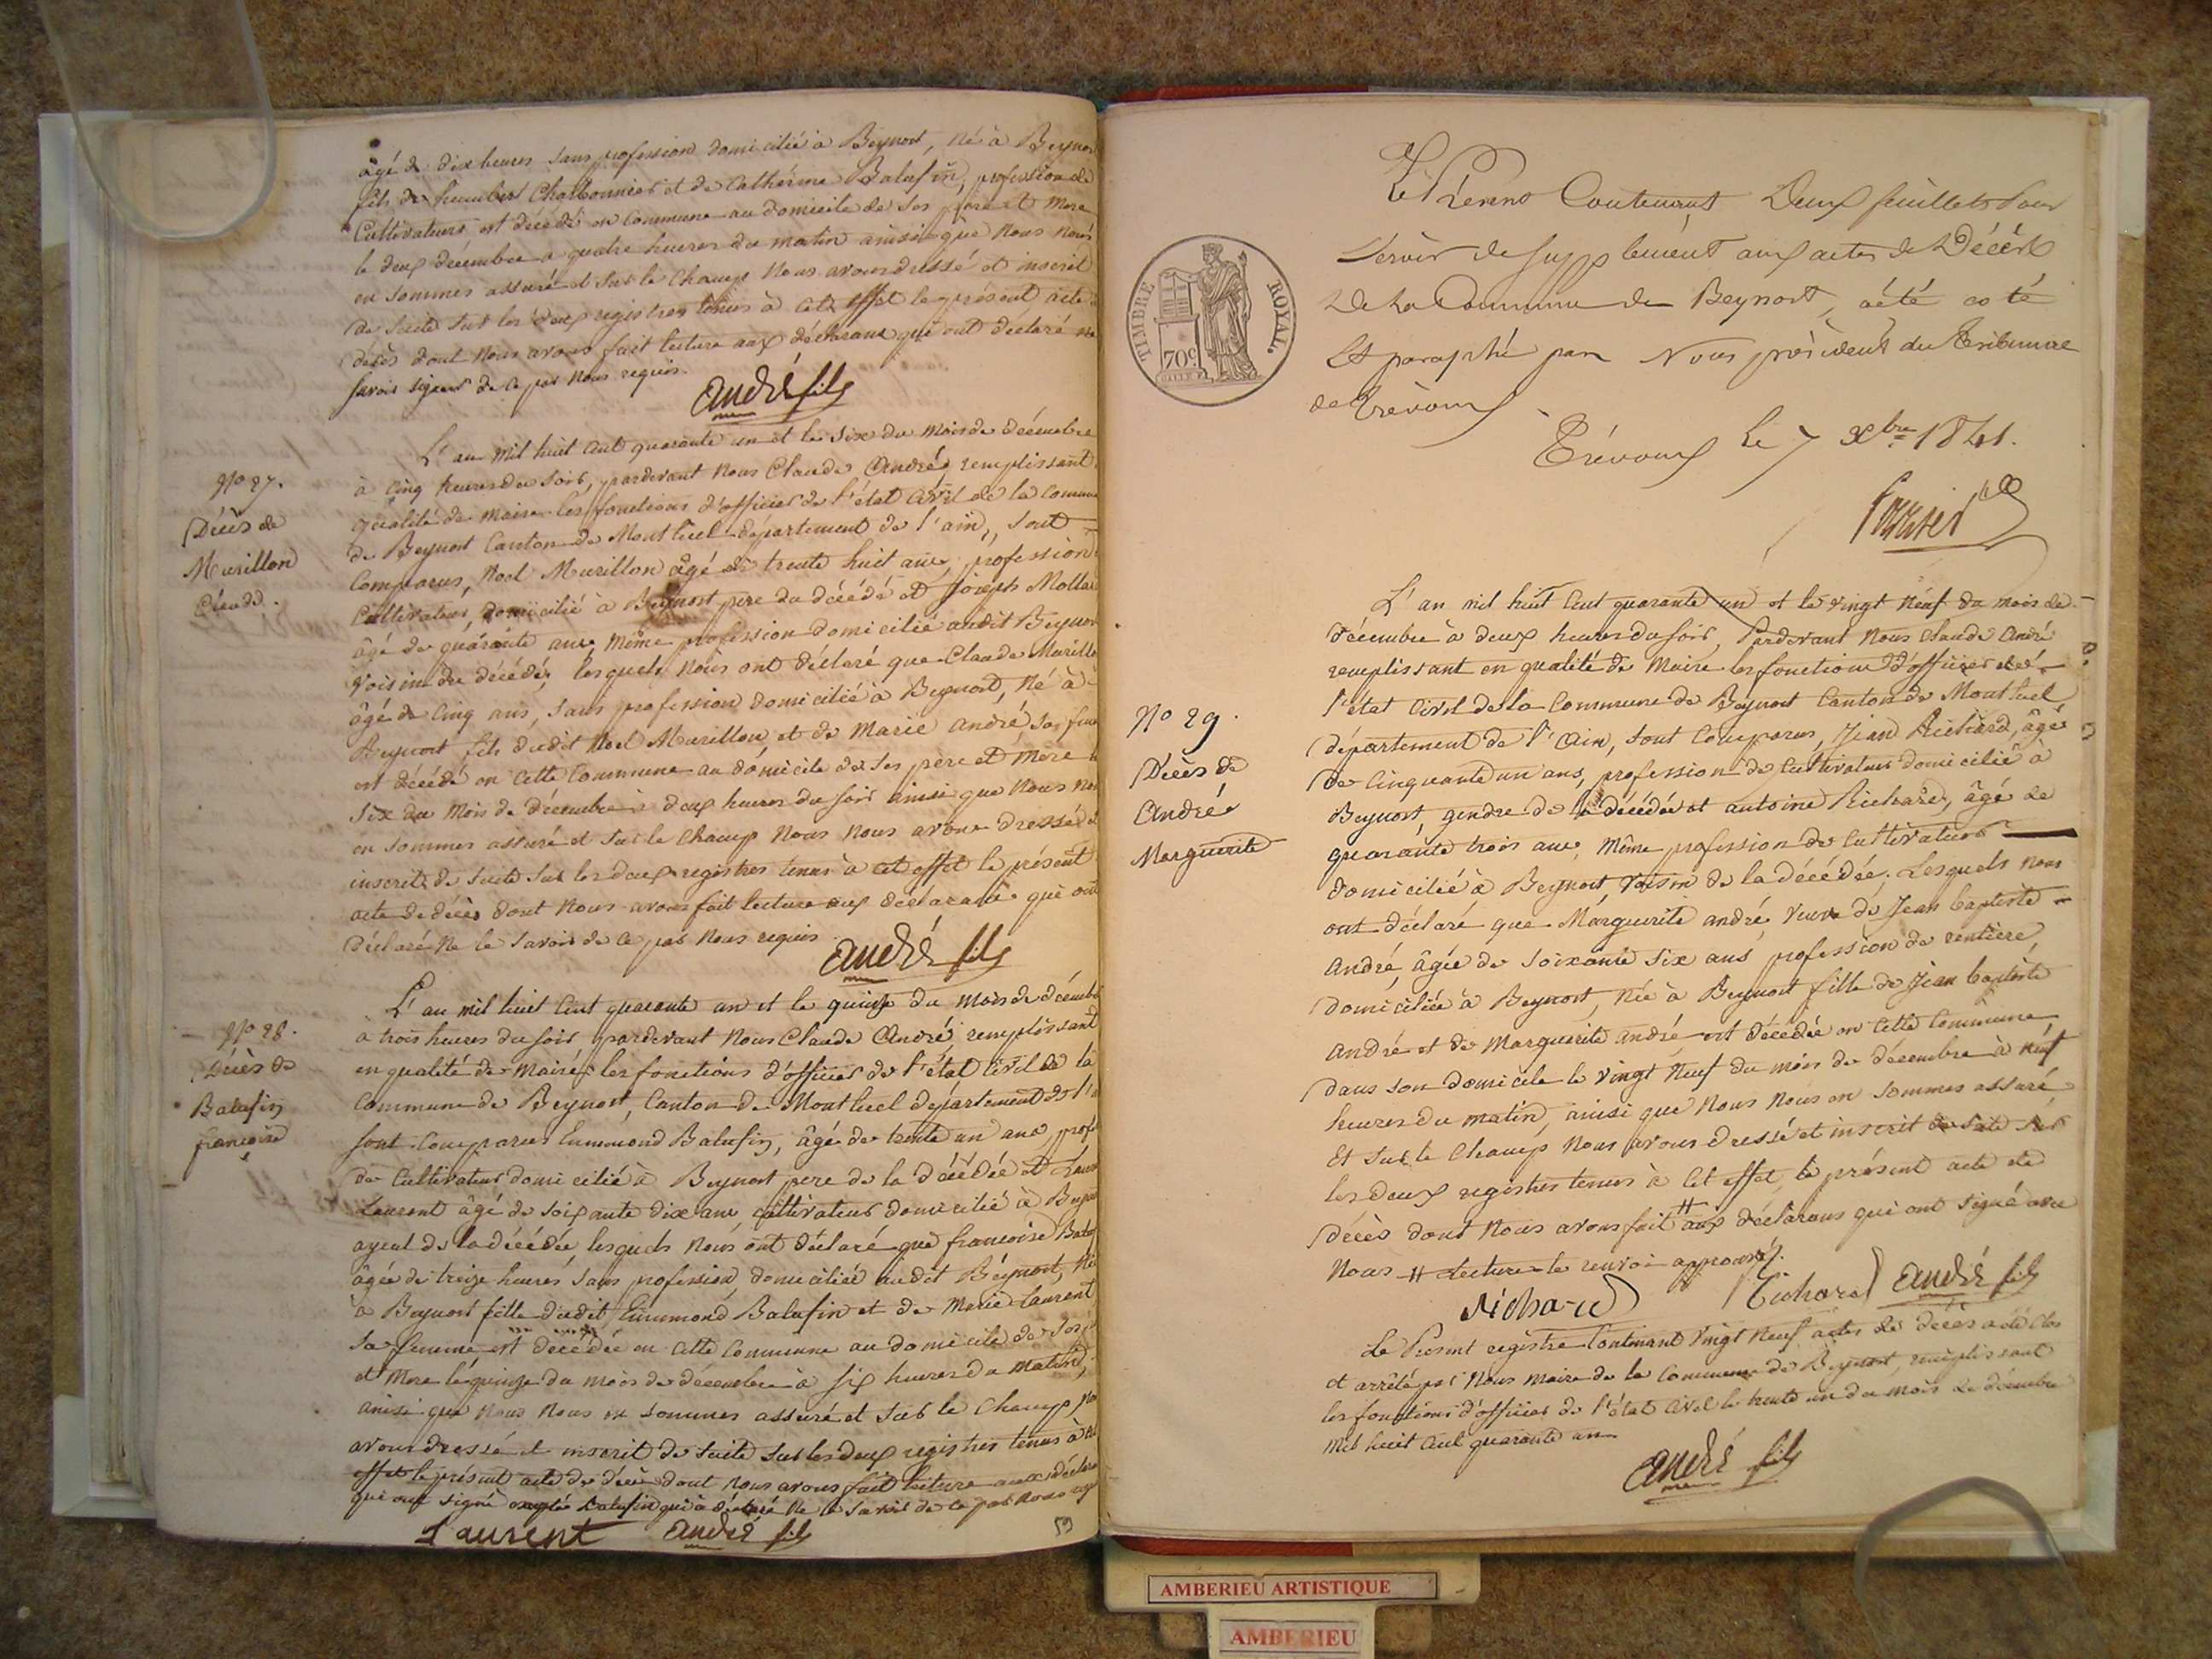 âgé de dix heures sans profession domicilié à Beynost, né à Beynost
fils de humbert Charbonnier et de Catherine Balufin, profession de
Cultivateurs est décédé en Commune au domicile de ses père et mère
le deux décembre à quatre heures du matin ainsi que nous nous
en sommes assuré et sur le champ nous avons dressé et inscrit
de suite sur les deux registres tenus à cet effet le présent acte de
décès dont nous avons fait lecture aux déclarans qui ont déclaré ne
savoir signer de ce par nous requis.
André fils
No 27.
Décès de
Murillon
Claude.
L'an mil huit cent quarante un et le six du mois de décembre
à cinq heures du soir, pardevant nous Claude André, remplissant
qualité de maire les fonctions d'officier de l'état civil de la commune
de Beynost Canton de Montluel département de l'ain, sont
Comparus, Noel Murillon âgé de trente huit ans, profession
Cultivateur, domicilié à Beynost père du décédé et Joseph Mollar
âgé de quarante ans, même profession domicilié audit Beynost
voisin du décédé, lesquels nous ont déclaré que Claude Murillon
âgé de cinq ans, sans profession domicilié à Beynost, né à
Beynost fils dudit Noel Murillon et de Marie André, sa femme
est décédé en cette Commune au domicile de ses père et mère le
six du mois de décembre à deux heures du soir ainsi que nous nous
en sommes assuré et sur le champ nous nous avons dressé et
inscrit de suite sur les deux registres tenus à cet effet le présent
acte de décès dont nous avons fait lecture aux déclarants qui ont
déclaré ne le savoir de ce par nous requis
André fils
No 28.
Décès de
Balufin
françoise
L'an mil huit cent quarante un et le quinze du mois de décembre
à trois heures du soir pardevant nous Claude André, remplissant
en qualité de maire, les fonctions d'officier de l'état civil de la
commune de Beynost, Canton de Montluel département de l'
sont Comparus Emmond Balufin, âgé de trente un ans, prof
de Cultivateur domicilié à Beynost père de la décédée et
Laurent âgé de soixante dix ans, cultivateur domicilié à Beynost
ayeul de la décédée, lesquels nous ont déclaré que françoise Baluf
âgée de treize heures sans profession, domiciliée audit Beynost, née
à Beynost fille dudit Emmond Balufin et de Marie Laurent
sa femme, est décédée en cette commune au domicile de ses
et mère le quinze du mois de décembre à six heures du matin,
ainsi que nous nous en sommes assuré et sur le champ nous
avons dressé et inscrit de suite sur les deux registres tenus à cet
effet le présent acte de décès dont nous avons fait lecture aux déclara
qui ont signé excepté Balufin qui à déclaré ne le savoir de ce par nous
Laurent André fils
Le Présent Contenant Deux feuillets pour
Servir de supplément aux actes de Décès
De La Commune de Beynost, a été coté
Et paraphé par Nous président du Tribunal
de Trévoux
Trévoux Le 7 Xbre 1841.
TIMBRE ROYAL.
70c
No 29.
Décès de
André
Marguerite
L'an mil huit cent quarante un et le vingt neuf du mois de
décembre à deux heures du soir, Pardevant nous Claude André
remplissant en qualité de Maire les fonctions d'officier de
l'état civil de la Commune de Beynost Canton de Montluel
département de l'Ain, sont Comparus, Jean Richard, âgé
de cinquante un ans, profession de Cultivateur domicilié à
Beynost, gendre de la décédée et antoine Richard, âgé de
quarante trois ans, même profession de Cultivateur
domicilié à Beynost voisin de la décédée. Lesquels nous
ont déclaré que Marguerite andré, veuve de Jean baptiste
André, âgée de soixante six ans profession de rentière,
domiciliée à Beynost, née à Beynost fille de Jean baptiste
André et de Marguerite andré est décédée en cette Commune
dans son domicile le vingt neuf du mois de décembre à neuf
heures du matin, ainsi que nous nous en sommes assuré
Et sur le Champ nous avons dressé et inscrit de suite sur
les deux registres tenus à Cet effet, le présent acte de
décès dont nous avons fait # aux déclarans qui ont signé avec
nous # lecture le renvoi approuvé.
Richard Richard André fils
Le Présent registre Contenant vingt neuf actes de décès a été clos
et arrêté par nous maire de la Commune de Beynost, remplissant
les fonctions d'officier de l'état civil le trente un du mois de décembre
mil huit cent quarante un
André fils
AMBERIEU ARTISTIQUE
AMBERIEU